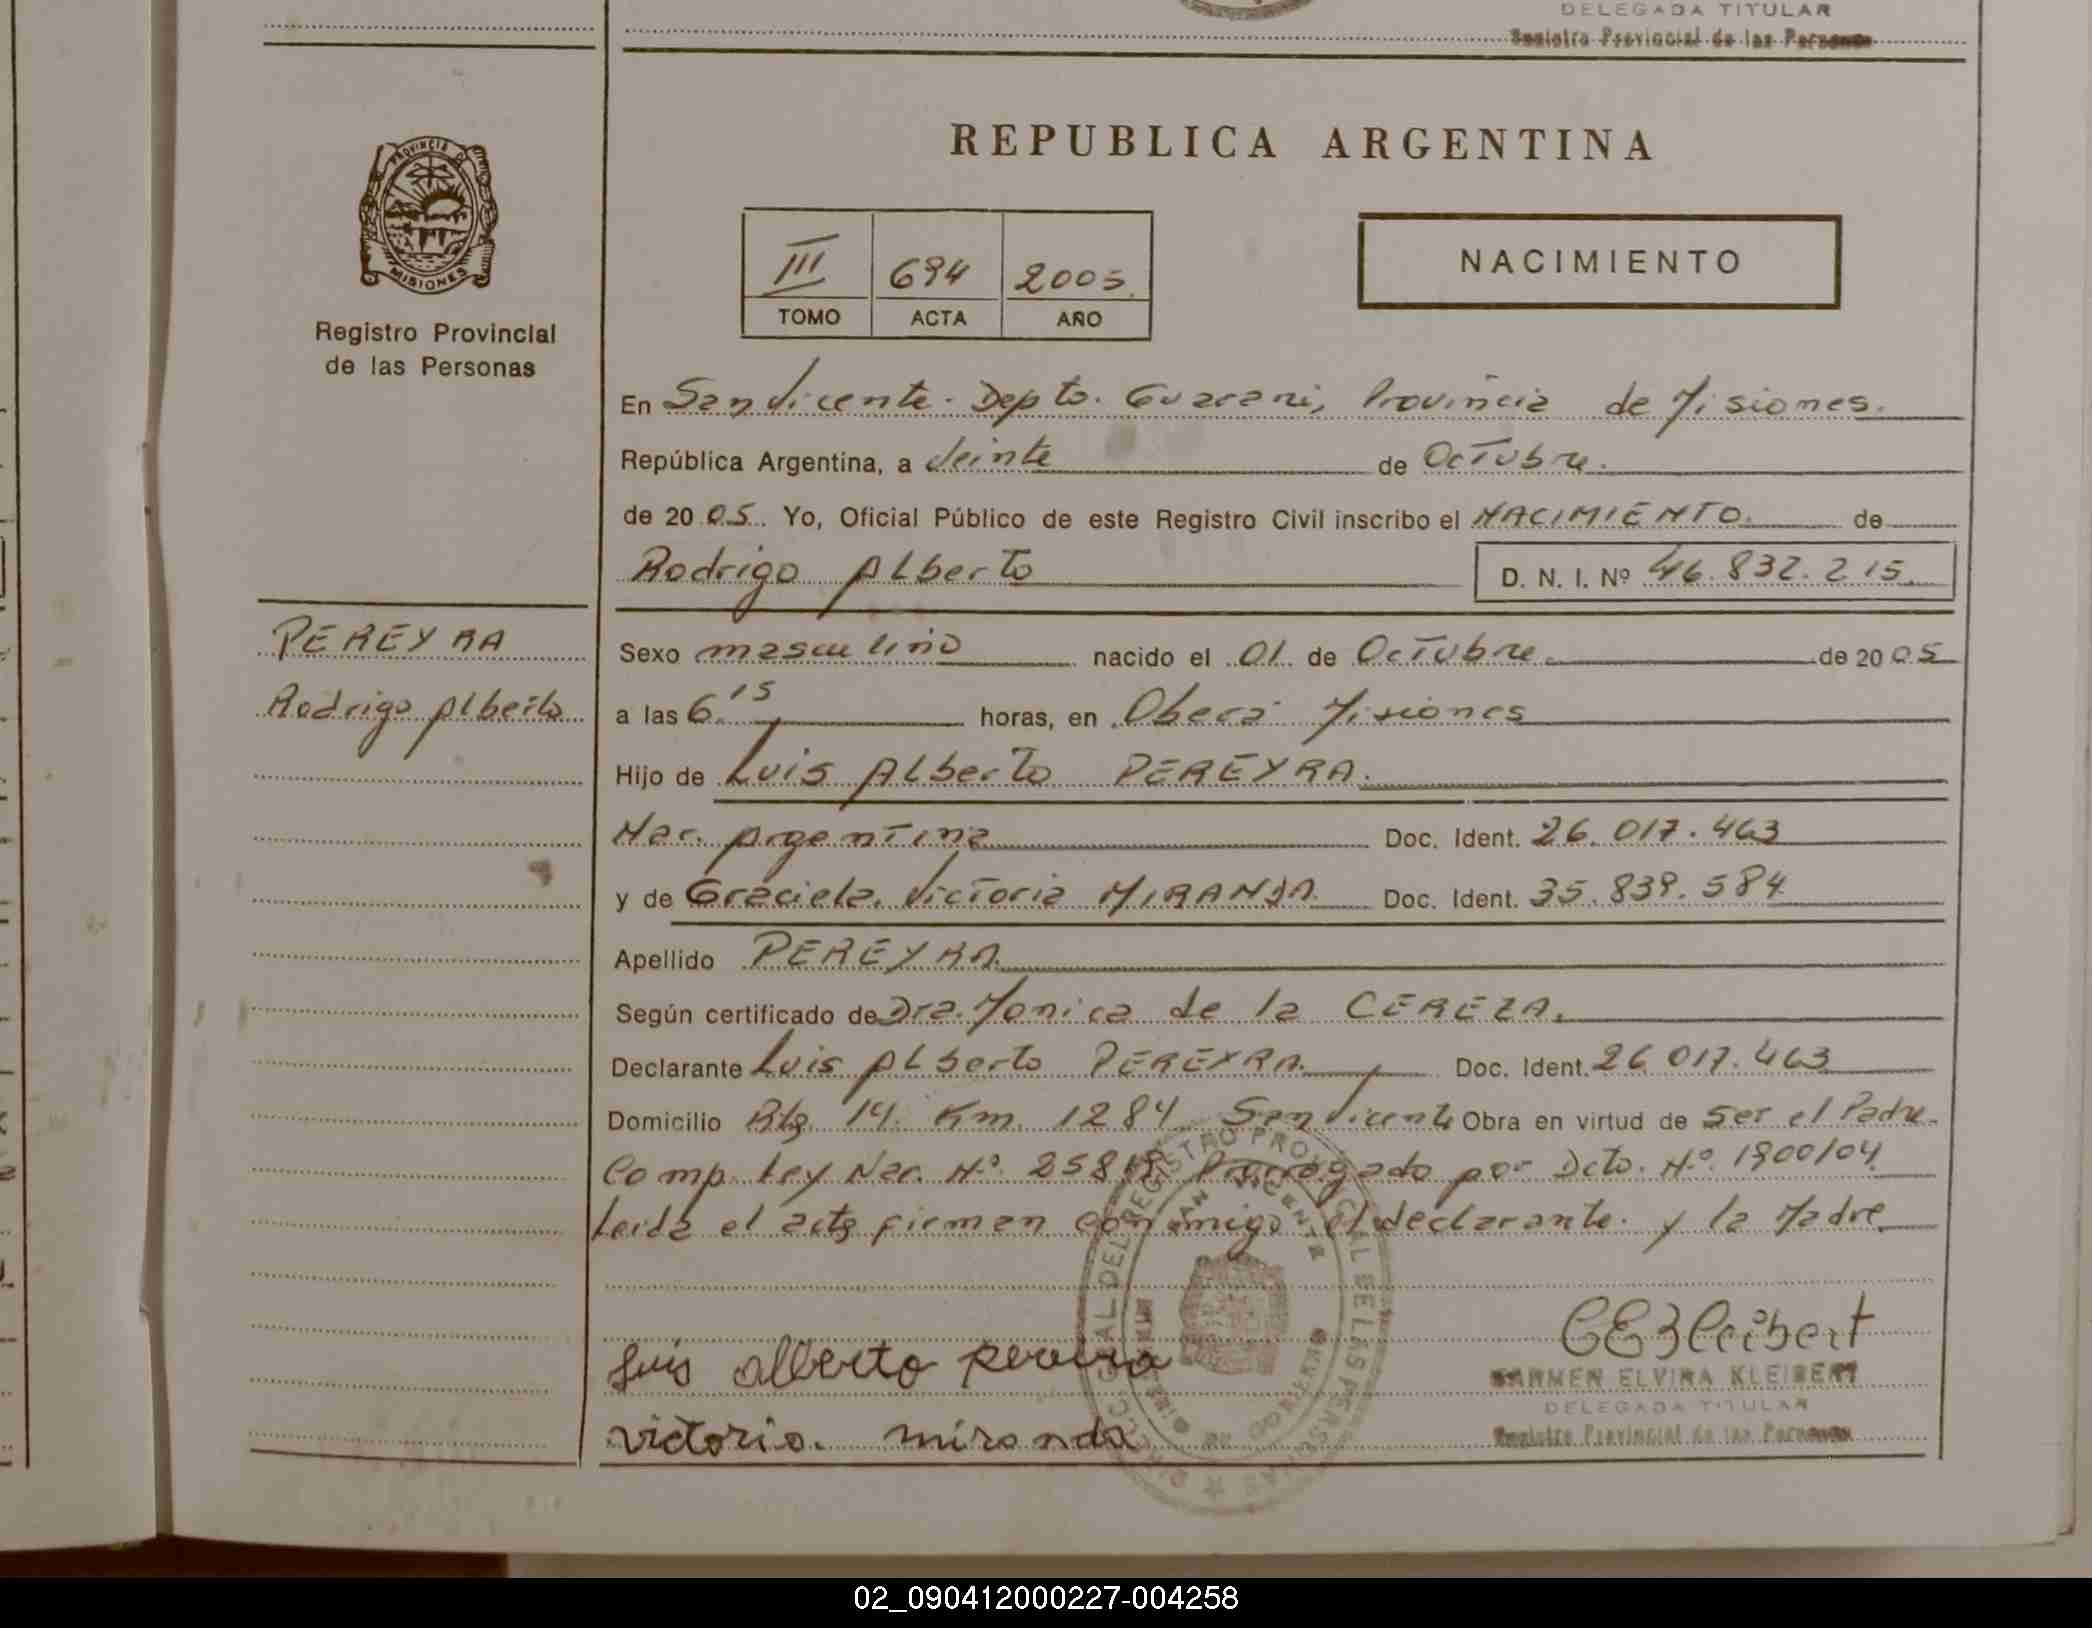 DELEGADA TITULAR
Registro Provincial de las Personas
REPUBLICA ARGENTINA
PROVINCIA DE
MISIONES
Registro Provincial
de las Personas
III 694 2005.
TOMO ACTA AÑO
NACIMIENTO
En San Vicente. Depto. Guarani, Provincia de Misiones.
República Argentina, a Veinte de Octubre.
de 2005. Yo, Oficial Público de este Registro Civil inscribo el NACIMIENTO. de
Rodrigo Alberto D. N. I. Nº 46.832.215.
PEREYRA
Rodrigo Alberto
Sexo masculino nacido el 01. de Octubre. de 2005
a las 6.15 horas, en Oberá Misiones
Hijo de Luis Alberto PEREYRA.
Nac. Argentina Doc. Ident. 26.017.463
y de Graciela Victoria MIRANDA. Doc. Ident. 35.839.584
Apellido PEREYRA.
Según certificado de Dra. Monica de la CEREZA.
Declarante Luis Alberto PEREYRA. Doc. Ident. 26.017.463
Domicilio Rta. 14. Km. 1284 San Vicente Obra en virtud de Ser el Padre.
Comp. Ley Nac. Nº. Prorrogado por Dcto. Nº. 1900/04
Leida el acta firman conmigo el declarante. y la Madre.
luis alberto pereira
victoria. miranda
CARMEN ELVIRA KLEIBERT
DELEGADA TITULAR
Registro Provincial de las Personas
DEL REGISTRO PROVINCIAL DE LAS PERSONAS
SAN VICENTE
02_090412000227-004258